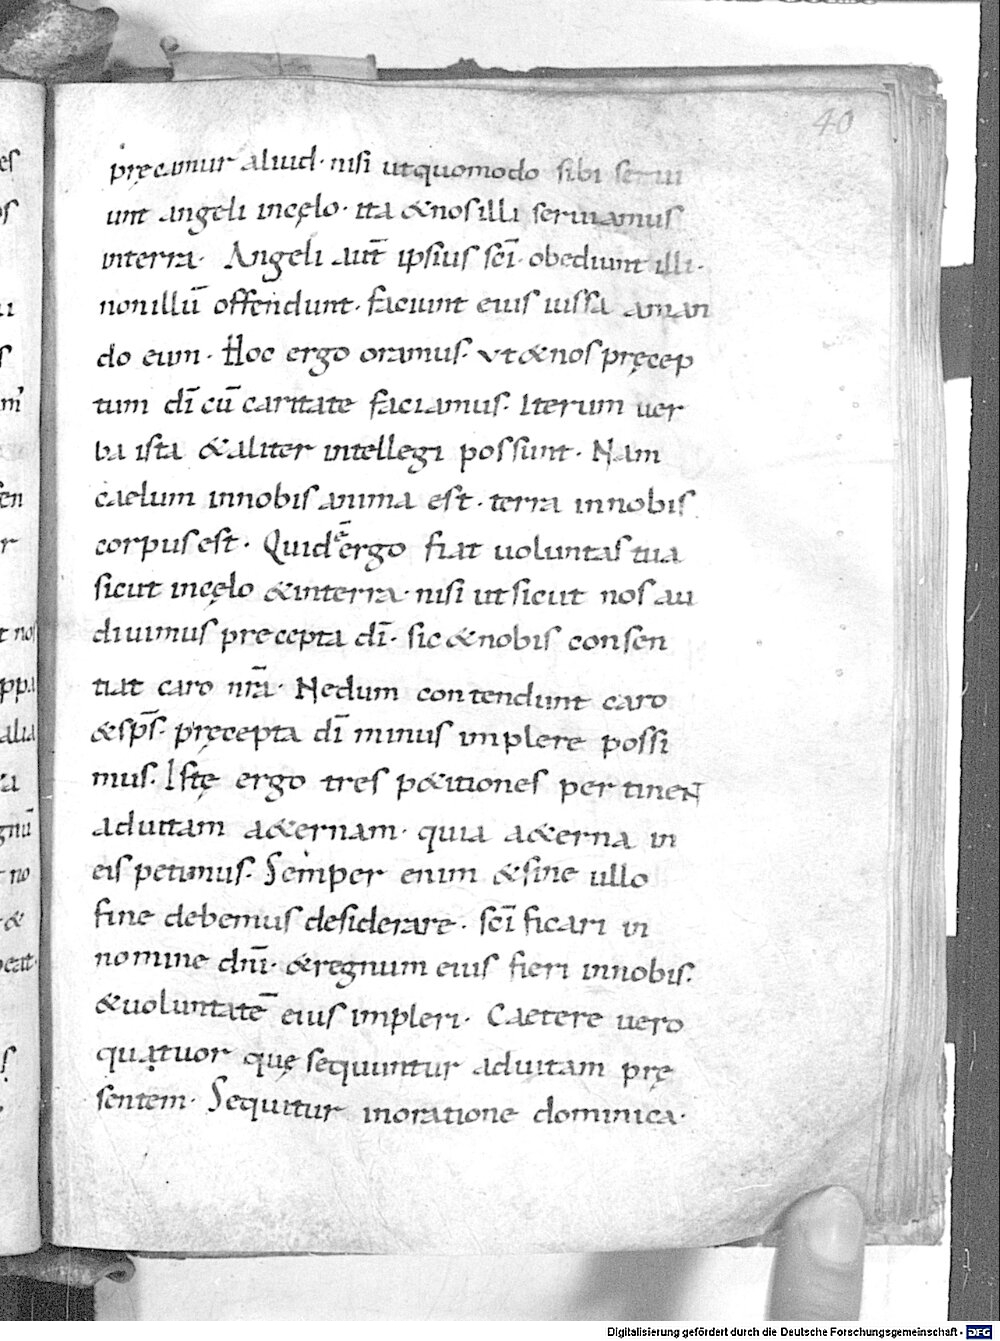 40
pręcamur aliud · nisi utquomodo sibi serui
unt angeli incęlo · ita &nosilli seruiamus
interra · Angeli aut̄ ipsius sc̄i · obediunt illi ·
nonillū offendunt · faciunt eius iussa aman
do eum · Hoc ergo oramus · vt&nos pręcep
tum dī cū caritate faciamus · Iterum uer
ba ista &aliter intellegi possunt · Nam
caelum innobis anima est · terra innobis
corpus est · Quid ē ergo fiat uoluntas tua
sicut incęlo &interra · nisi ut sicut nos au
diuimus precepta dī · sic &nobis consen
tiat caro nr̄a · Nedum contendunt caro
&sp̄s · pręcepta dī minus implere possi
mus · Istę ergo tres p&itiones pertinen
aduitam a&ernam · quia a&erna in
eis petimus · Semper enim &sine ullo
fine debemus desiderare · sc̄ificari in
nomine dn̄i · &regnum eius fieri innobis ·
&uoluntatē eius impleri · Caetere uero
quątuor quę sequuntur aduitam prę
sentem · Sequitur inoratione dominica ·
Digitalisierung gefördert durch die Deutsche Forschungsgemeinschaft - DFG